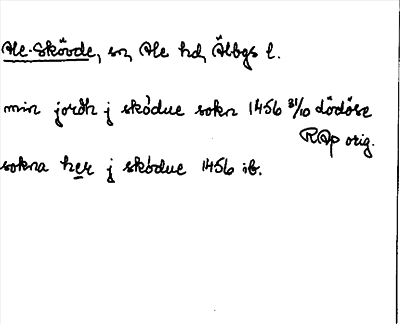 Ale-Skövde, sn, Ale hd, Älvbgs l.
min jordh j skødue sokn 1456 31/10 Lödöse
RAp orig.
sokna her j skødue 1456 ib.